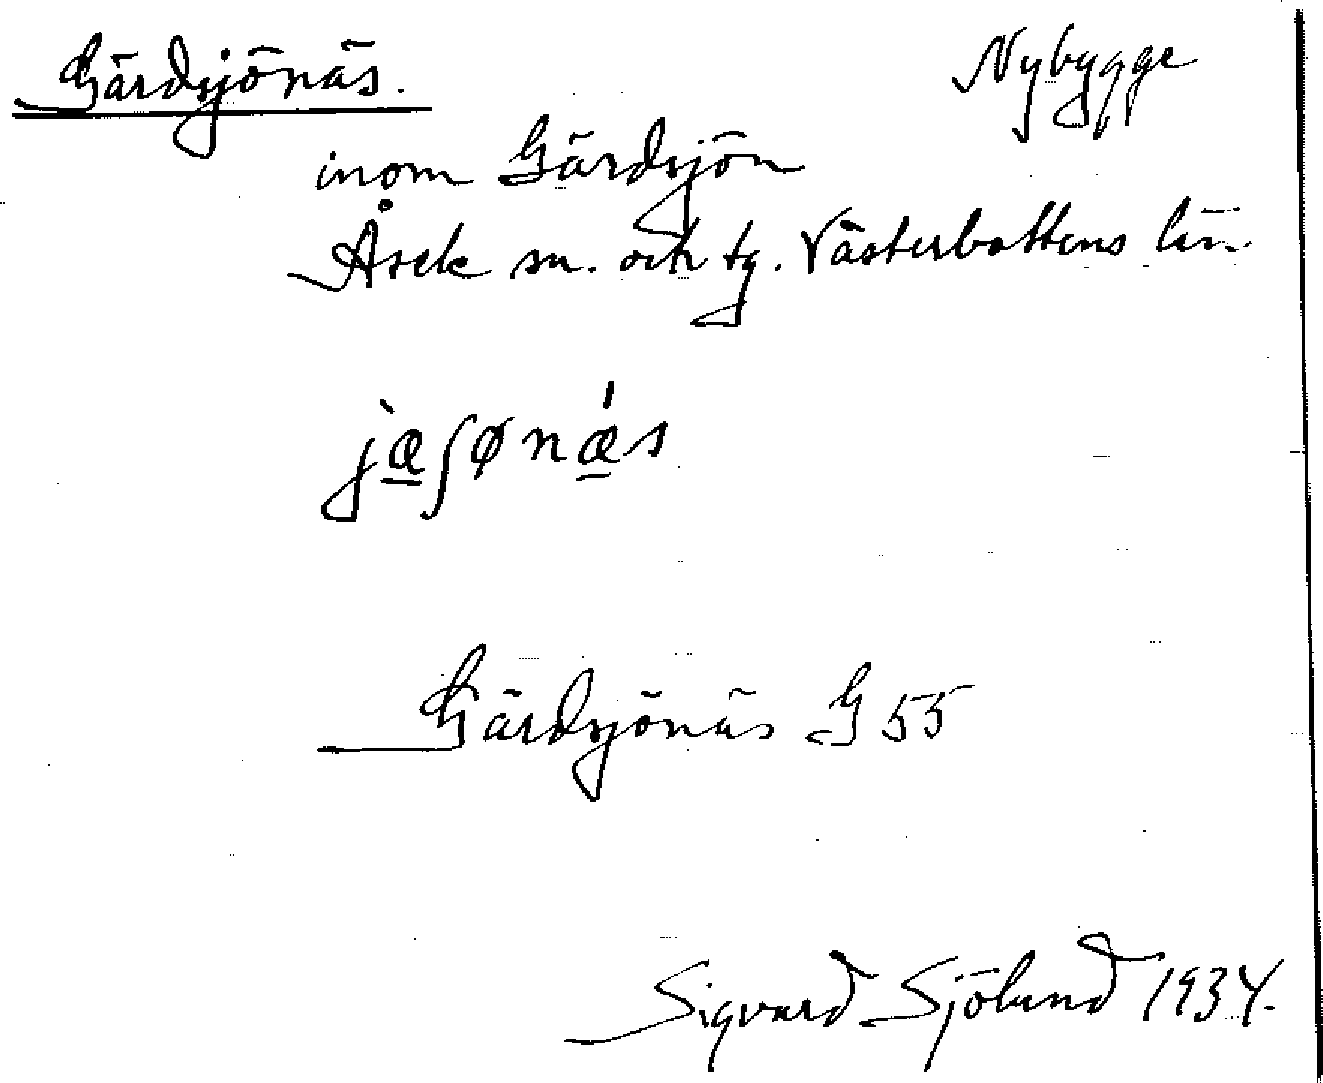 Gärdsjönäs. Nybygge
inom Gärdsjön
Åsele sn. och tg. Västerbottens län
jæ̱̀ʃønǽ̱s
Gärdsjönäs G 55
Sigvard Sjölund 1934.